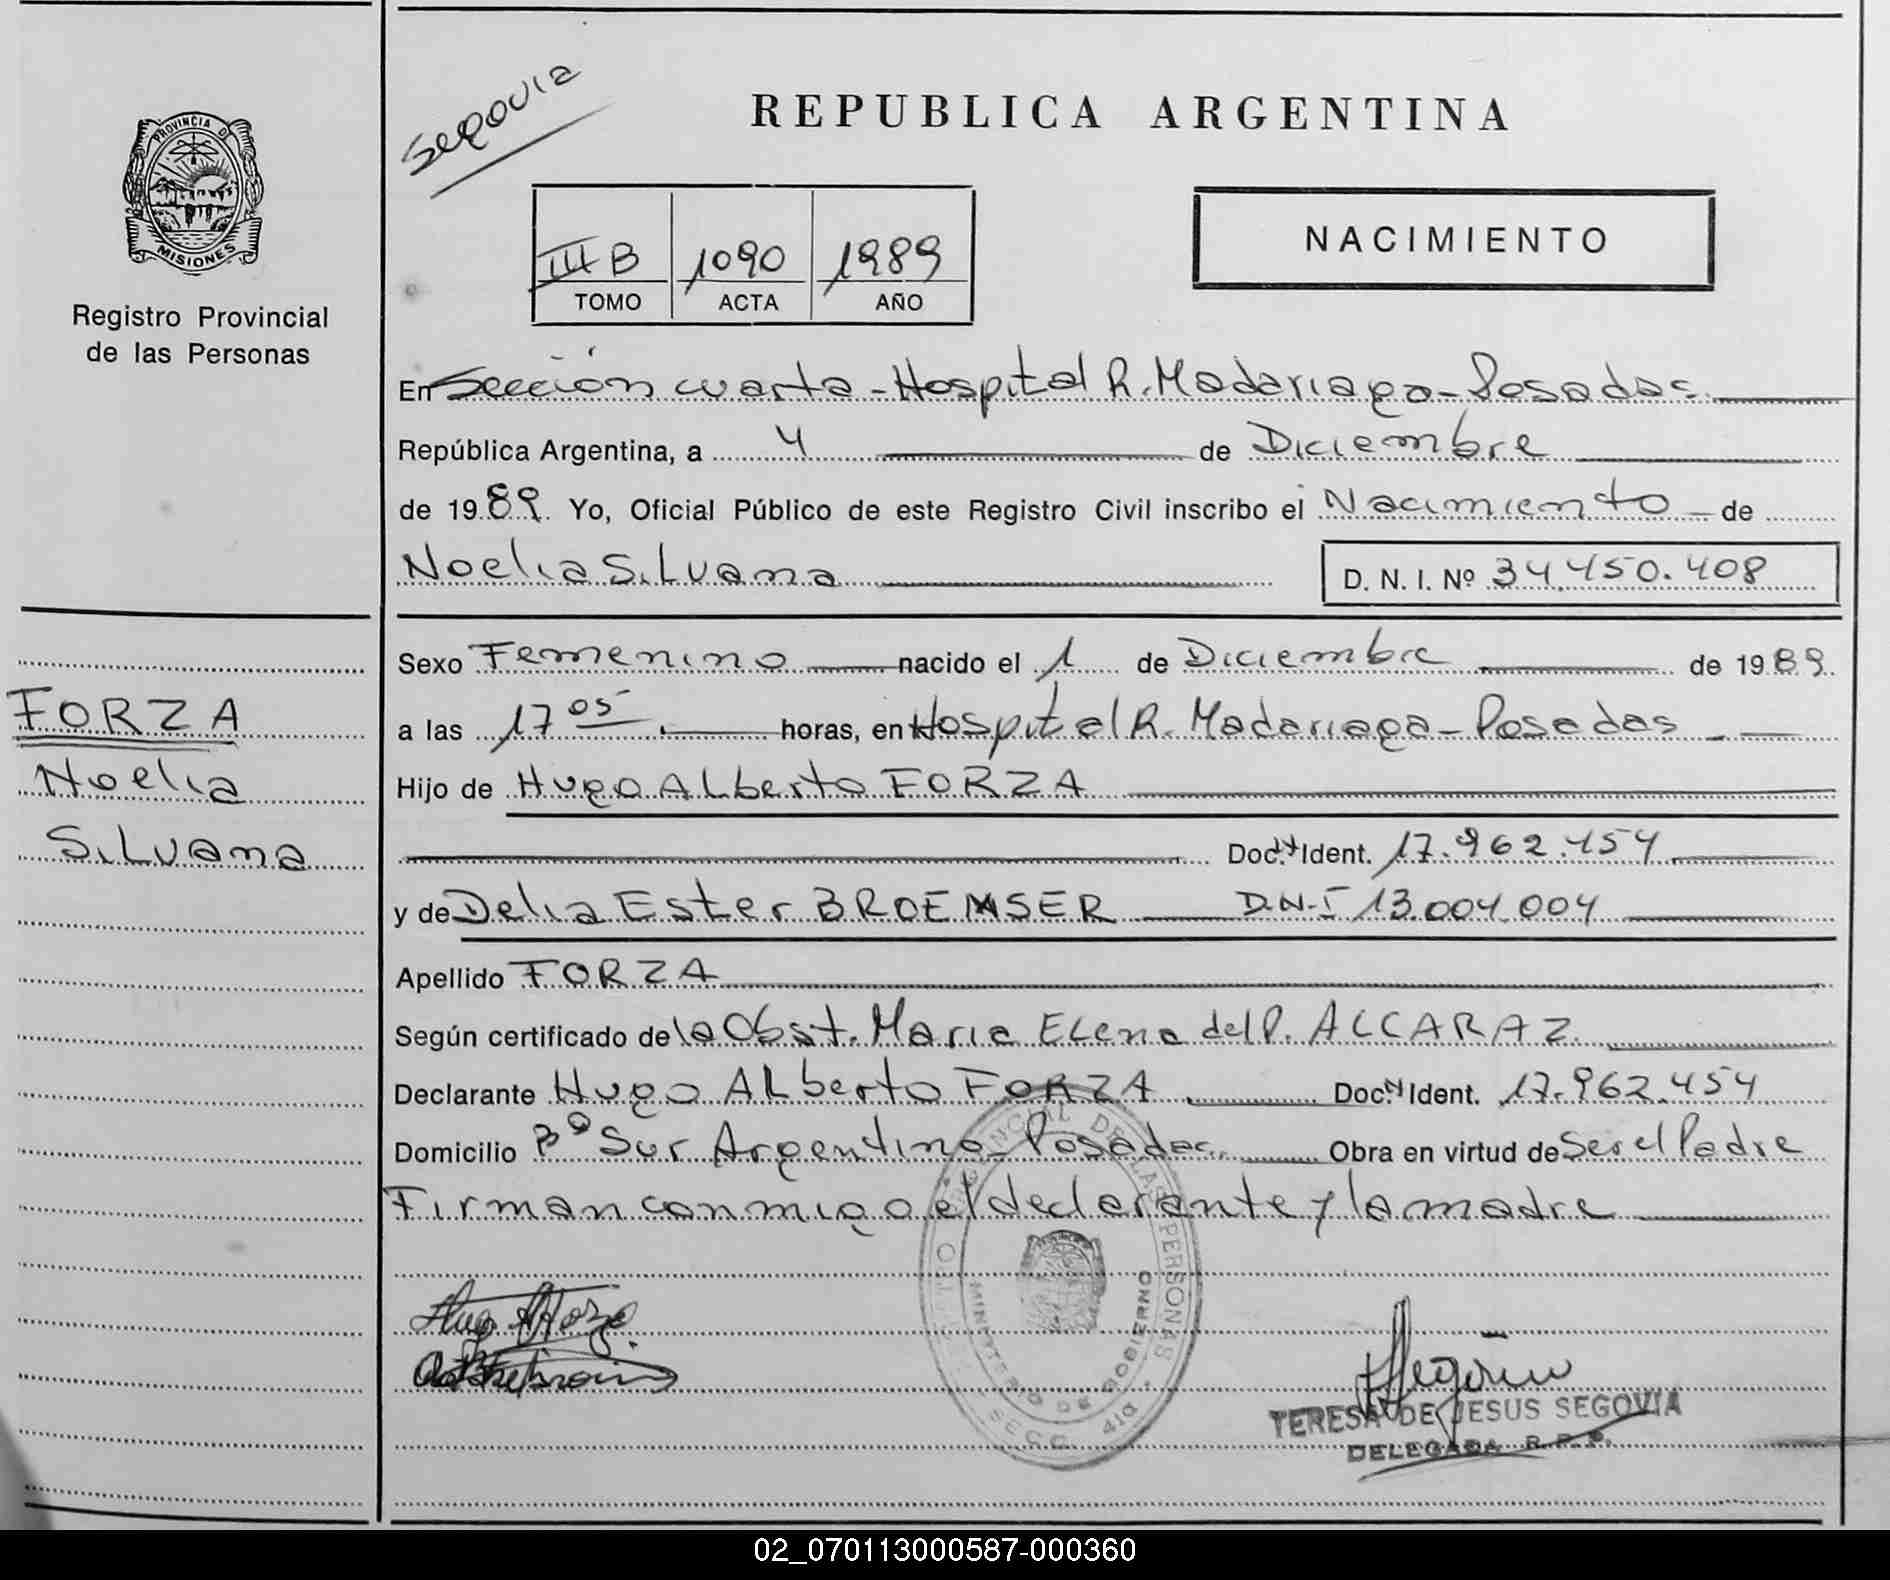 PROVINCIA DE
MISIONES
Registro Provincial
de las Personas
FORZA
Noelia
Silvana
Segovia
REPUBLICA ARGENTINA
III B 1090 1989
TOMO ACTA AÑO
NACIMIENTO
En Sección cuarta - Hospital R. Madariaga - Posadas
República Argentina, a 4 de Diciembre
de 1989. Yo, Oficial Público de este Registro Civil inscribo el Nacimiento de
Noelia Silvana D. N. I. Nº 34.450.408
Sexo Femenino nacido el 1 de Diciembre de 1989.
a las 17 05 horas, en Hospital R. Madariaga - Posadas
Hijo de Hugo Alberto FORZA
Doc. Ident. 17.962.454
y de Delia Ester BROEMSER D.N.I 13.004.004
Apellido FORZA
Según certificado de la Obst. Maria Elena del P. ALCARAZ
Declarante Hugo Alberto FORZA Doc. Ident. 17.962.454
Domicilio Bº Sur Argentino - Posadas Obra en virtud de Ser el Padre
Firman conmigo el declarante y la madre
REGISTRO PROVINCIAL DE LAS PERSONAS
MINISTERIO DE GOBIERNO
SECC. 4ta
TERESA DE JESUS SEGOVIA
DELEGADA R.P.P.
02_070113000587-000360